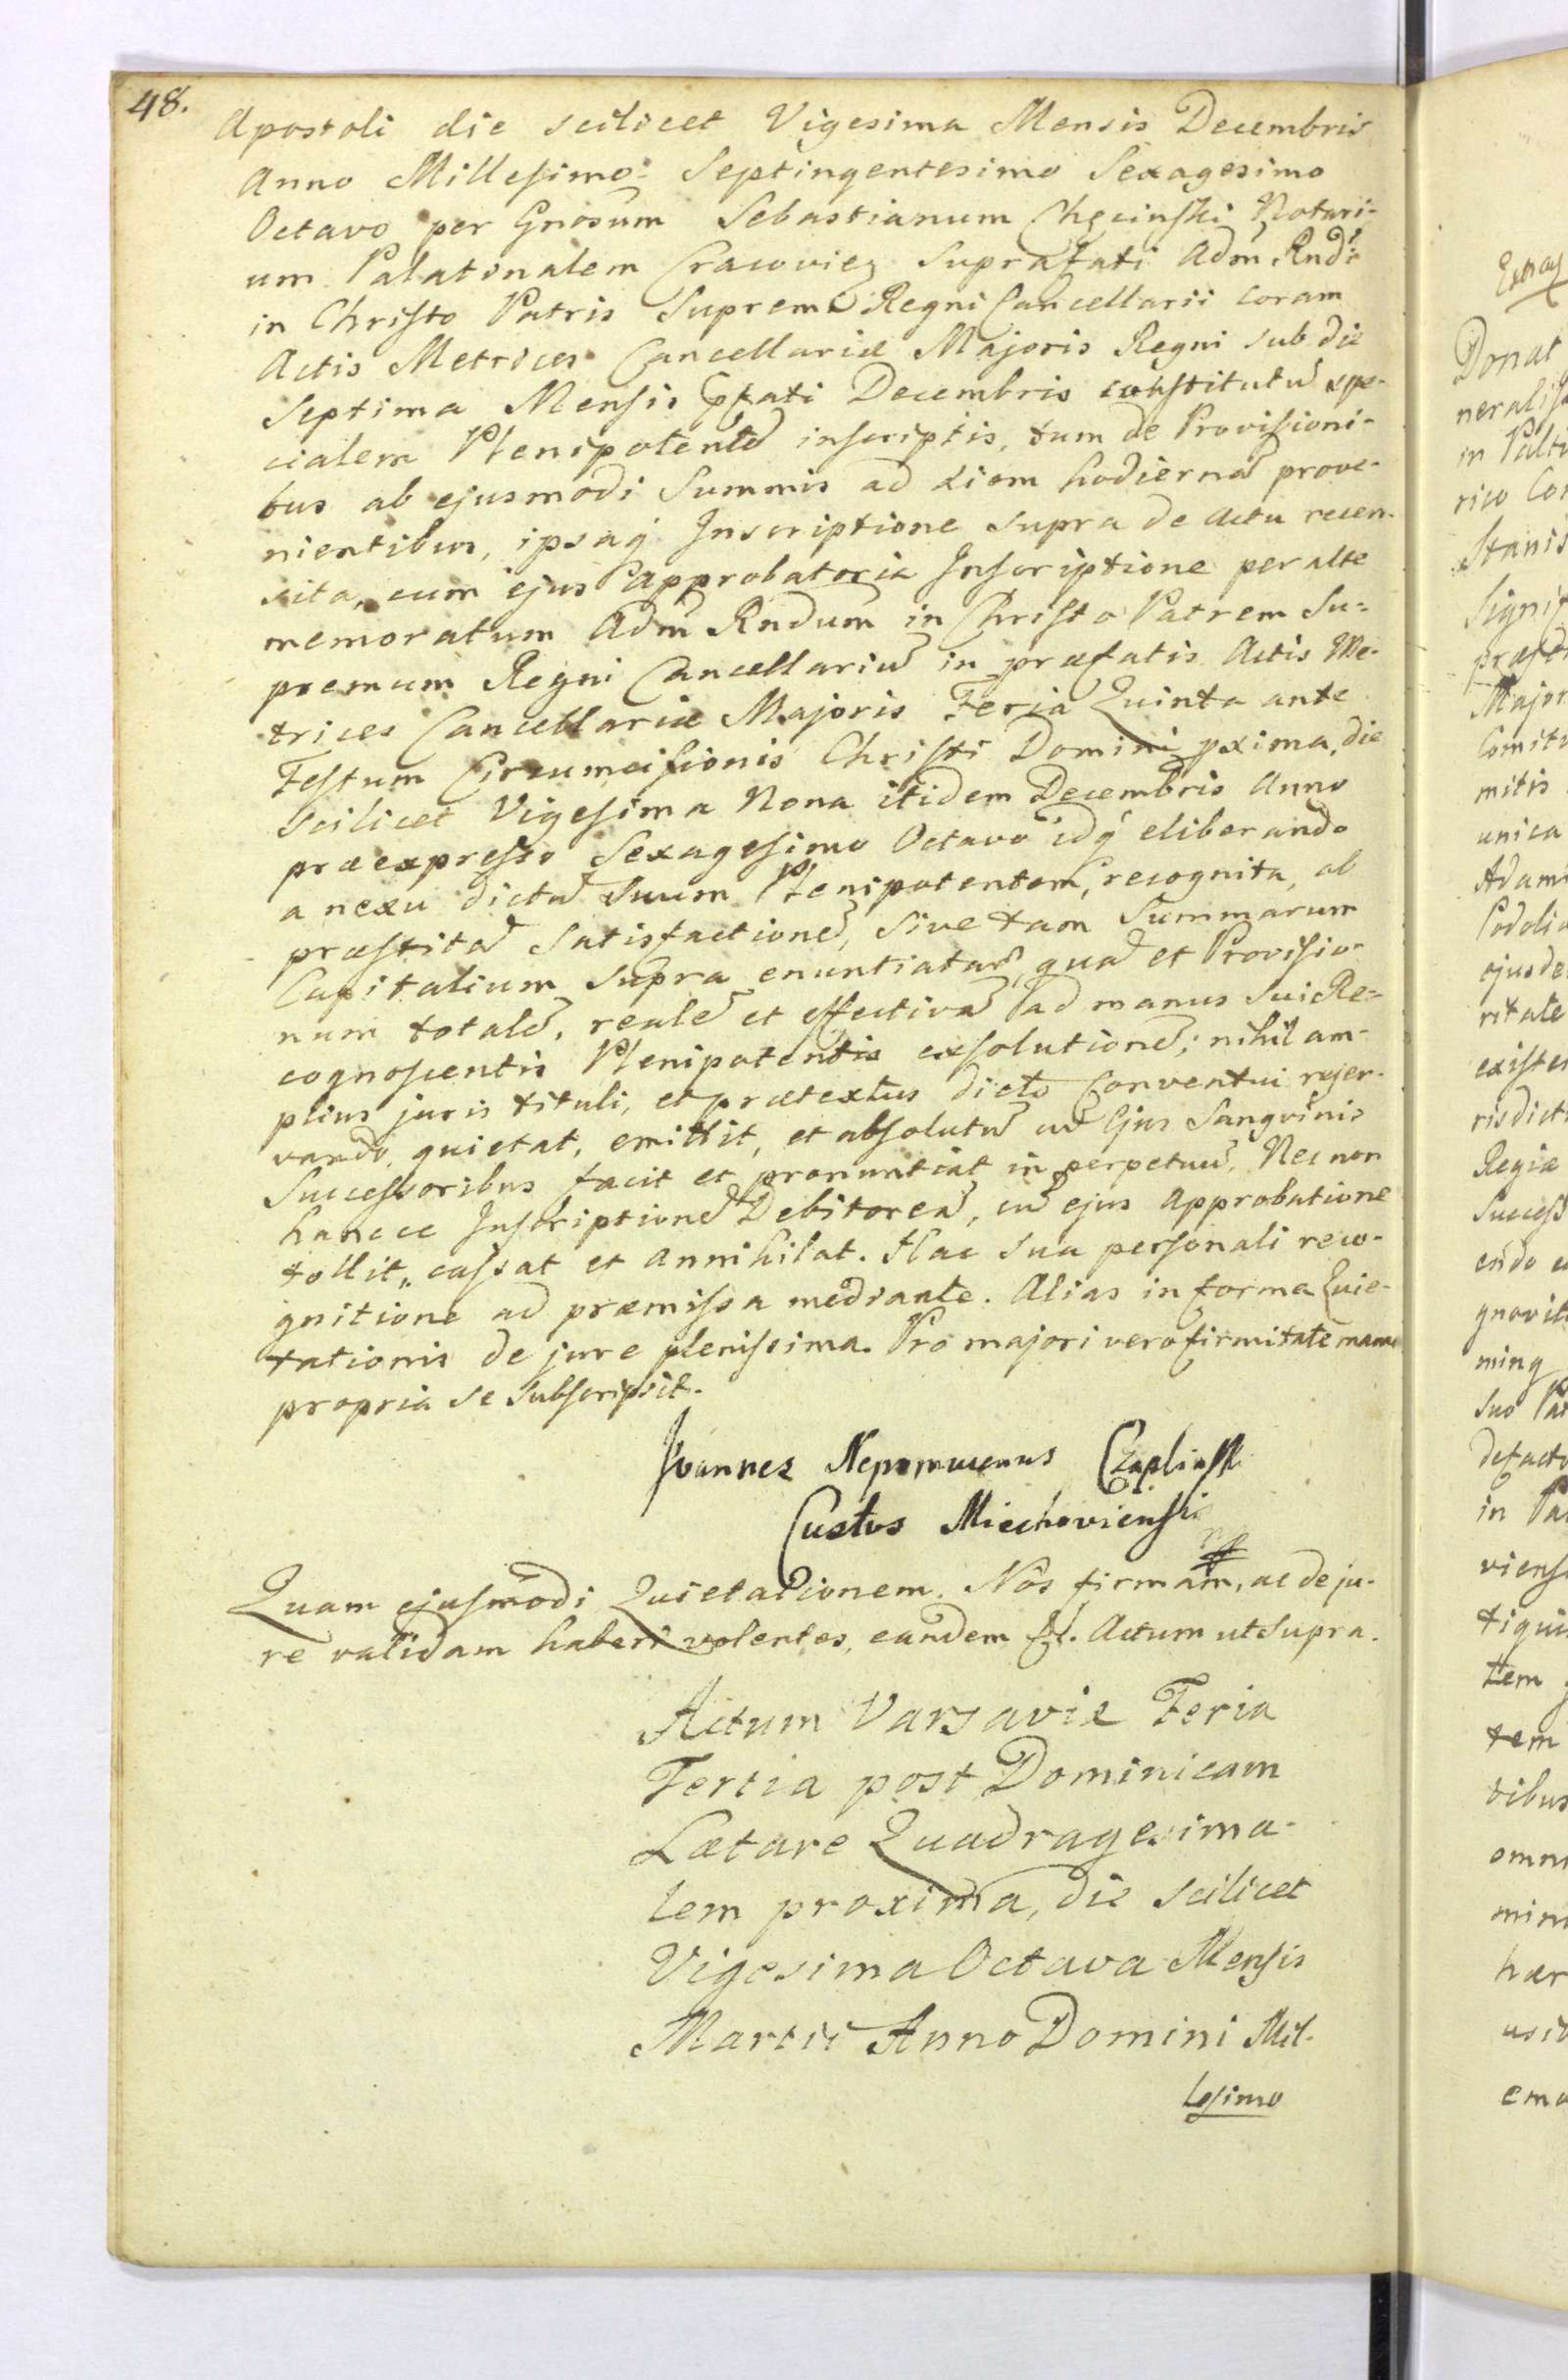 48.
Apostoli die scilicet Vigesima Mensis Decembris
Anno Millesimo Septingentesimo Sexagesimo
Octavo per Gnosum Sebastianum Chęcinski Notari-
um Palatinalem Cracovien Suprafati Adm Rndi
in Christo Patris Supremi Regni Cancellarii coram
Actis Metrices Cancellariæ Majoris Regni sub die
Septima Mensis pfati Decembris constitutu spe-
cialem Plenipotente inscriptis, tum de Provisioni-
bus ab ejusmodi Summis ad diem hodierna prove-
nientibus, ipsaq Inscriptione supra de actu recen-
sita, cum ejus approbatoria Inscriptione per alte
memoratum Adm Rndum in Christo Patrem Su-
premum Regni Cancellariu in præfatis Actis Me-
trices Cancellariæ Majoris Feria Quinta ante
Festum Circumcisionis Christi Domini pxima, die
scilicet Vigesima Nona itidem Decembris Anno
præexpresso Sexagesimo Octavo idq eliberando
a nexu dictu suum Plenipotentem, recognita, ob
præstita satisfactione, sive tam Summarum
Capitalium supra enuntiatar, qua et Provisio-
num totale, reale et effectiva ad manus sui Re-
cognoscentis Plenipotentis exsolutione; nihil am-
plius juris tituli, et prætextus dicto Conventui rejer-
vando, quietat, emittit, et absolutu cu Ejus Sangvinis
Successoribus facit et pronuntiat in perpetuu. Nec non
hancce Inscriptione Debitorea, cu ejus Approbatione
tollit, cassat et annihilat. Hac sua personali reco-
gnitione ad præmissa mediante. Alias in forma Quie-
tationis de jure plenissima. Pro majori vero firmitate manu
propria se subscripsit.
Joannes Nepomucenus Czaplinski
Custos Miechoviensis
mp
Quam ejusmodi Quietationem. Nos firmam, ac de ju-
re validam haberi volentes, eandem Actum ut supra.
Actum Varsaviæ Feria
Tertia post Dominicam
Lætare Quadragesima-
lem proxima, die scilicet
Vigesima Octava Mensis
Martii Anno Domini Mil-
lesimo
Donat
in
Stanis
Signif
Major
mitis
unica
Adam
Podoli
ejusde
ritate
existen
Regiæ
Success
gnovit
ming
suo
defacto
in
tiqui
tem
tem
tibus
omn
min
hær